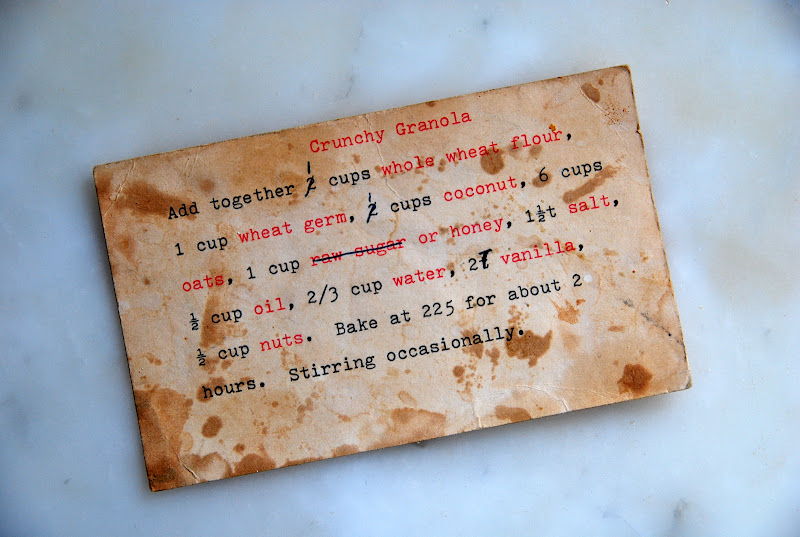 Crunchy Granola
Add together 1 cups whole wheat flour,
1 cup wheat germ, 1 cups coconut, 6 cups
oats, 1 cup raw sugar or honey, 1½t salt,
½ cup oil, 2/3 cup water, 2T vanilla,
½ cup nuts. Bake at 225 for about 2
hours. Stirring occasionally.